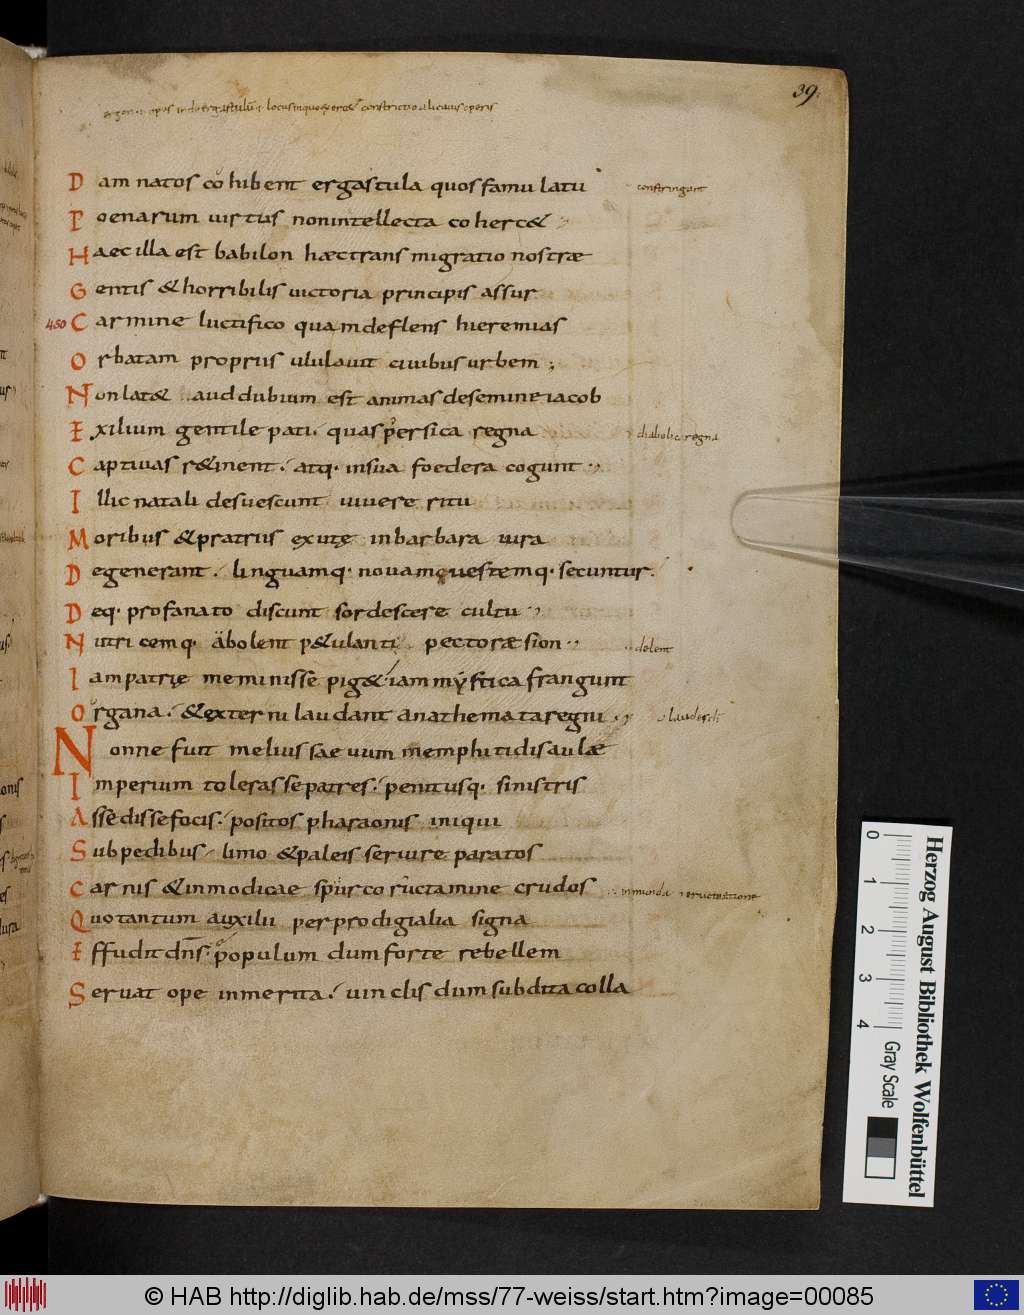 39.
ergon .i. opus inde ergastulum .i. locus in quo exercet constrictio alicuius operis
Dam natos cohibent ergastula quos famu latu constringant
Poenarum uirtus nonintellecta coherc&
Haec illa est babilon hæc trans migratio nostræ
Gentis &horribilis uictoria principis assur
450 Carmine luctifico quam deflens hieremias
Orbatam propriis ululauit ciuibus urbem ;
Non lat& aud dubium est animas de semine iacob
Exilium gentile pati. quas persica regna diabolica regna
Captiuas r&inent. atq. in sua foedera cogunt
Illic natali desuescunt uiuere ritu
Moribus &patriis exutę in barbara iura
Degenerant. linguamq. nouamq uestemq. secuntur.
Deq. profanato discunt sordescere cultu
Nutri cemq. abolent p&ulanti pectoræ sion dolent
Iam patrię meminisse pig& iam mystica frangunt
Organa. &externi laudant anathemata regni
Nonne fuit melius saeuum memphitidis aulæ
Imperium tolerasse patres. penitusq. sinistris
Assedisse focis. positos pharaonis iniqui
Sub pedibus limo &paleis seruire paratos
Carnis &inmodicae spurco ructamine crudos inmunda eructuatione
Quo tantum auxilii per prodigialia signa
Effudit dns. populum dum forte rebellem
Seruat ope inmerita. uin clis dum subdita colla
Herzog August Bibliothek Wolfenbüttel
0 1 2 3 4
Gray Scale
© HAB http://diglib.hab.de/mss/77-weiss/start.htm?image=00085